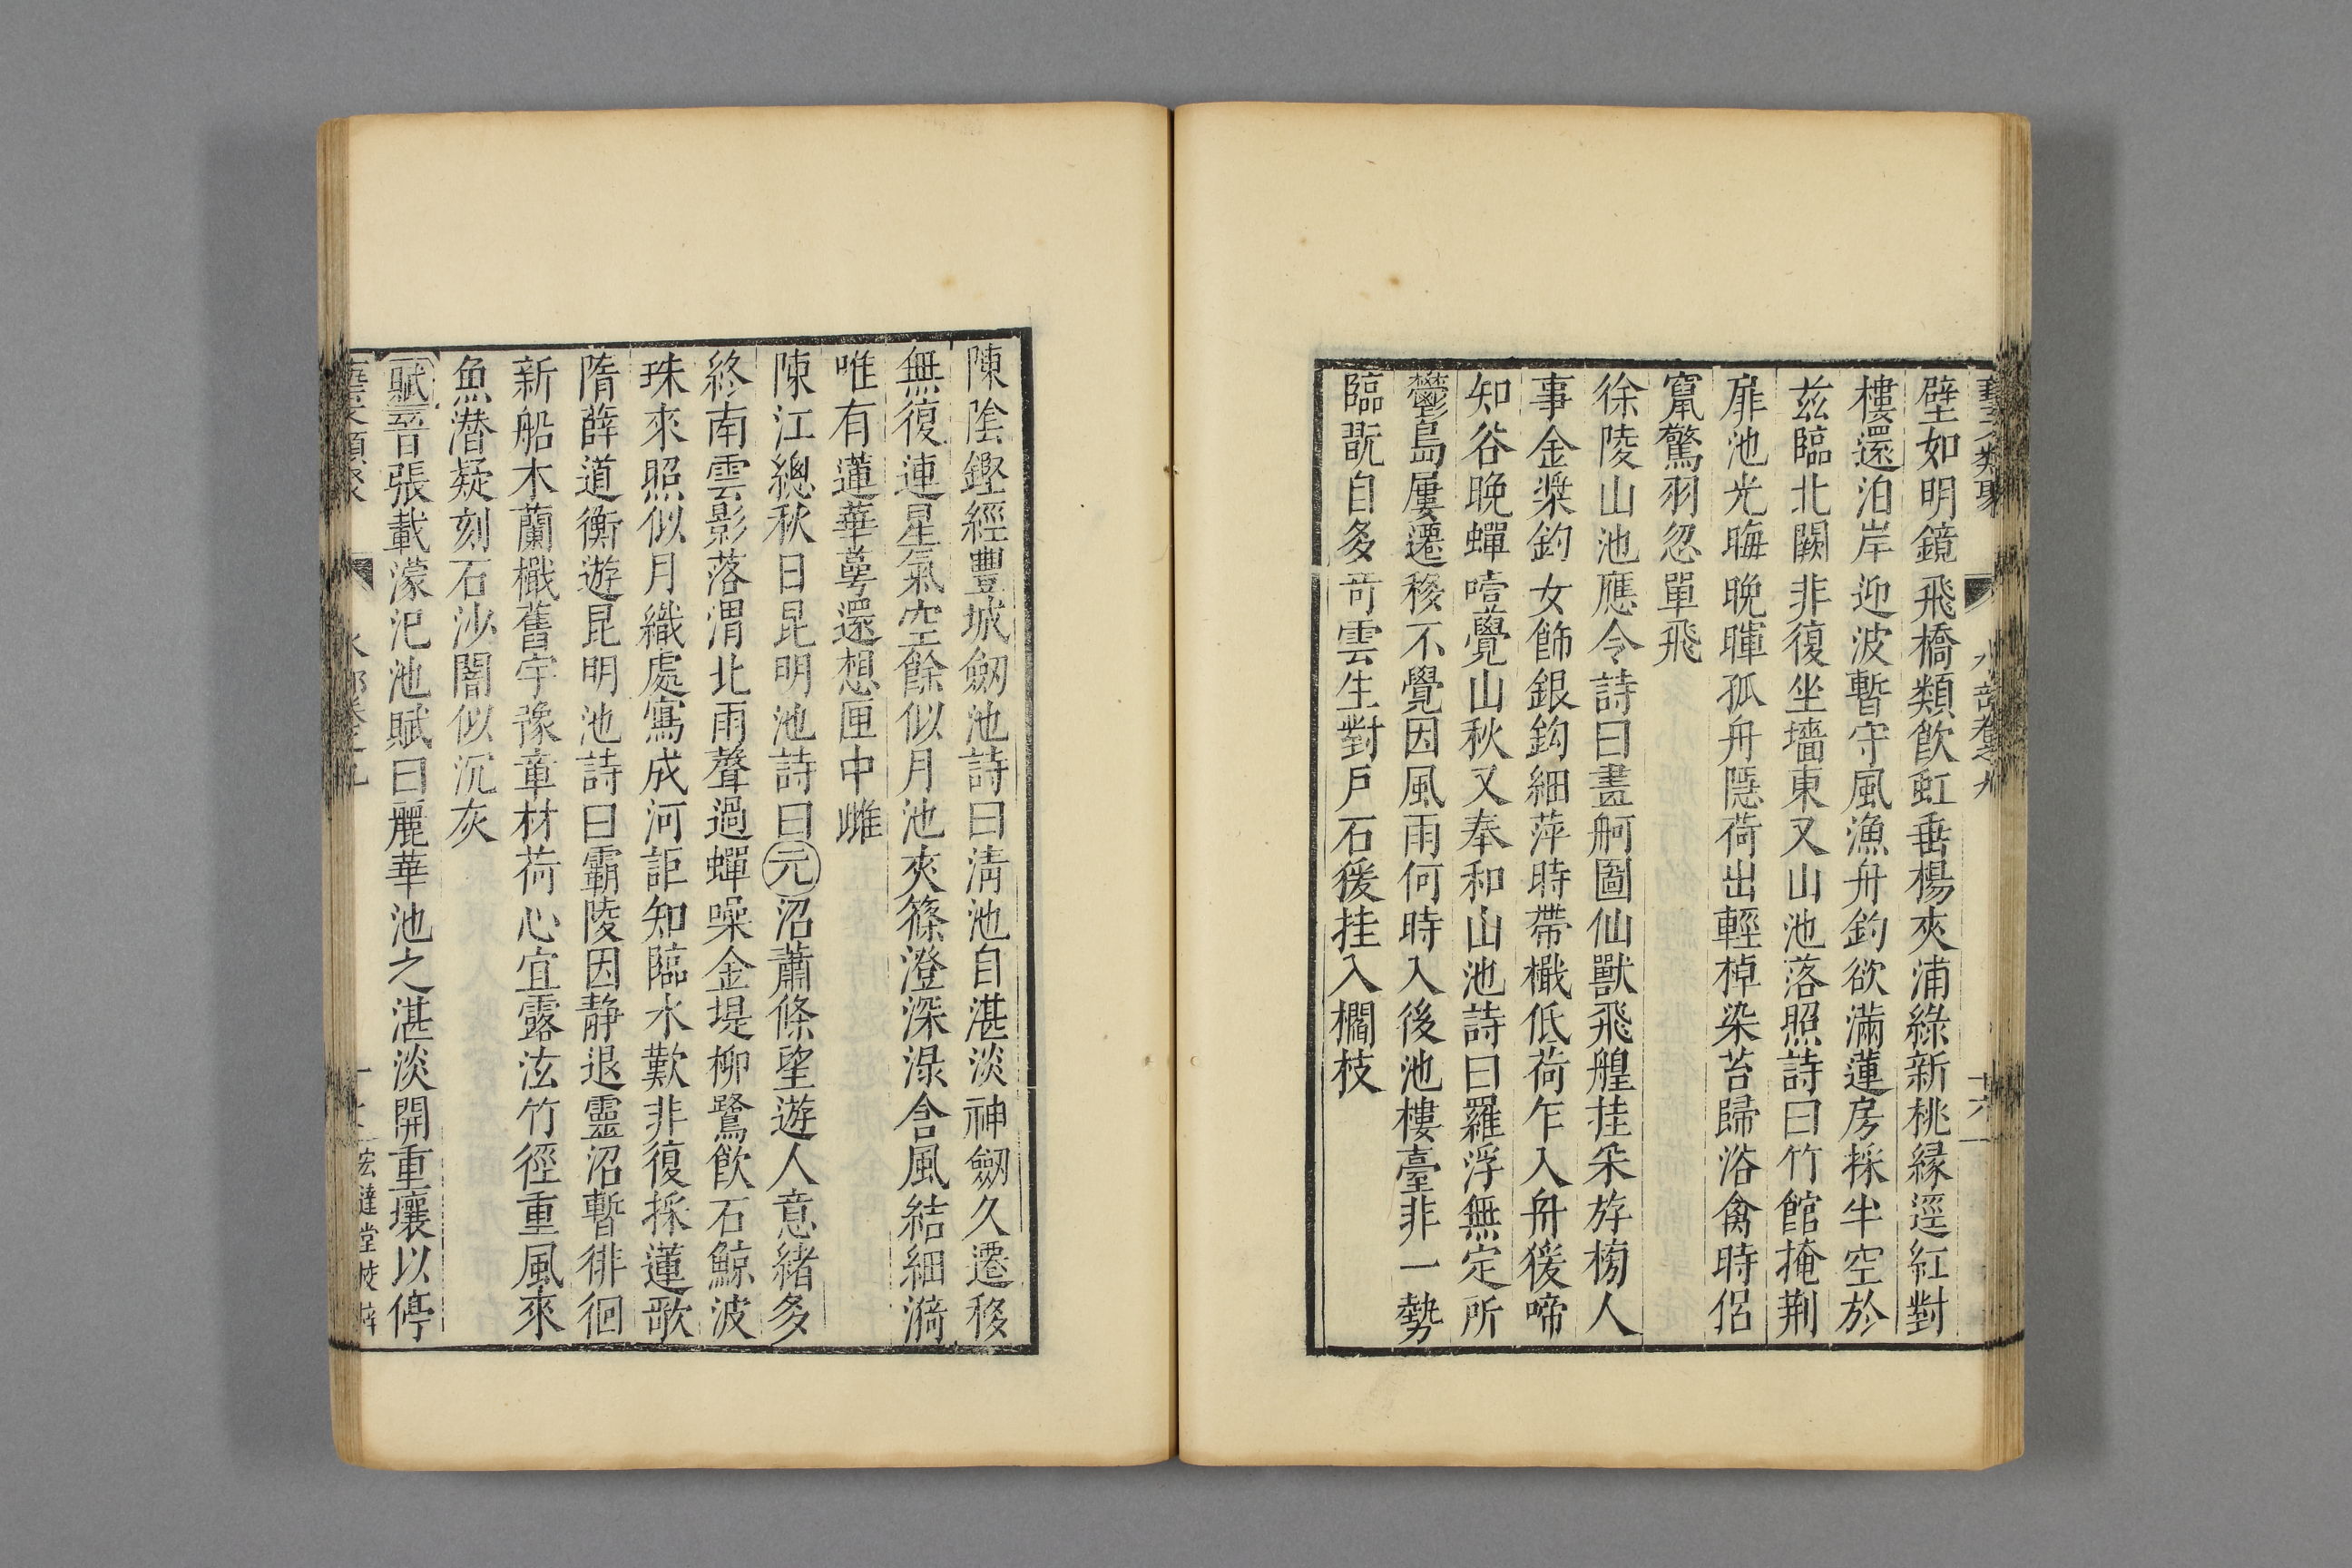 壁如明鏡飛橋類飲虹垂楊夾浦綠新桃緣逕紅對
樓還泊岸迎波暫守風漁舟釣欲滿蓮房採半空於
兹臨北闕非復坐墻東又山池落照詩曰竹館掩荆
扉池光晦晚暉孤舟隱荷出輕棹染苔歸浴禽時侶
竄驚羽忽單飛
徐陵山池應令詩曰畫舸圖仙獸飛艎挂采斿榜人
事金槳釣女飾銀鈎細萍時帶檝低荷乍入舟猨啼
知谷晚蟬咽覺山秋又奉和山池詩曰羅浮無定所
鬱島屢遷移不覺因風雨何時入後池樓臺非一勢
臨翫自多奇雲生對戶石猨挂入櫩枝
陳陰鏗經豐城劒池詩曰淸池自湛淡神劒久遷移
無復連星氣空餘似月池夾篠澄深淥含風結細漪
唯有蓮華萼還想匣中雌
陳江總秋日昆明池詩曰元沼蕭條望遊人意緒多
終南雲影落渭北雨聲過蟬噪金堤柳鷺飲石鯨波
珠來照似月織處寫成河詎知臨水歎非復採蓮歌
隋薛道衡遊昆明池詩曰霸陵因静退靈沼暫徘徊
新船木蘭檝舊宇豫章材荷心宜露泫竹徑重風來
魚潜疑刻石沙闇似沉灰
賦晋張載濛汜池賦曰麗華池之湛淡開重壤以停